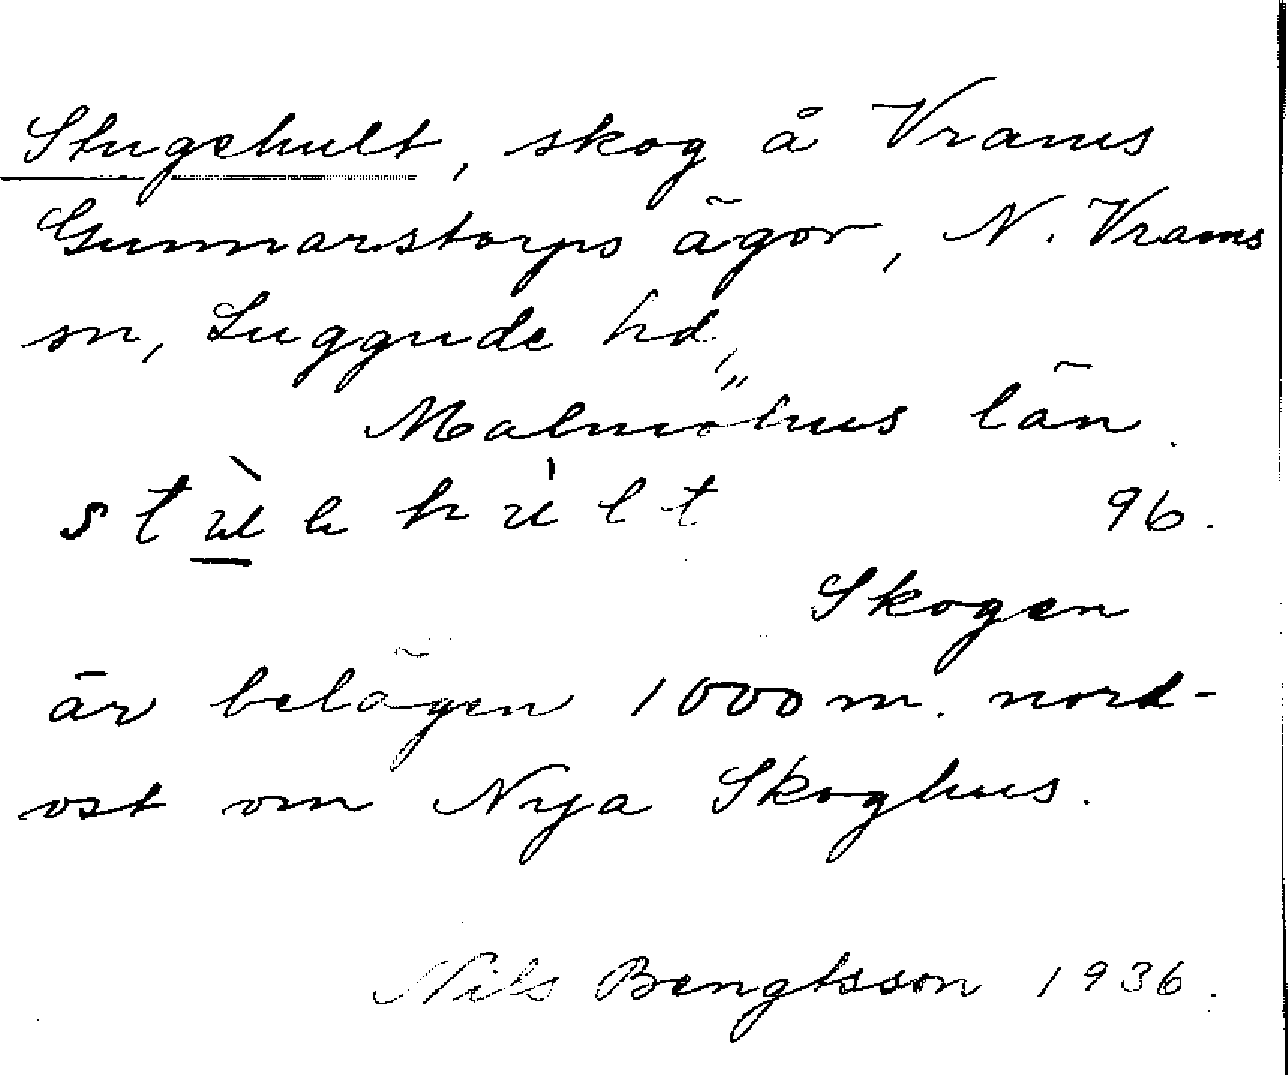 Stugehult, skog å Vrams
Gunnarstorps ägor, N. Vrams
sn, Luggude hd,
Malmöhus län.
96.
Skogen
är belägen 1000 m. nord-
ost om Nya Skoghus.
Nils Bengtsson 1936.